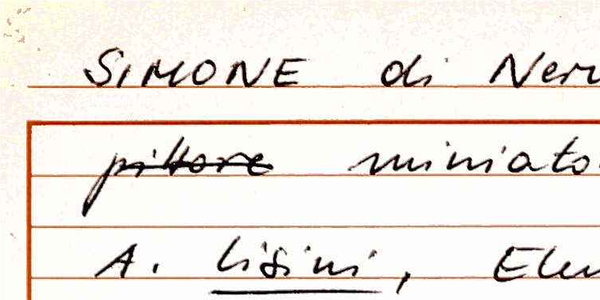 SIMONE di Neru
pittore miniato
A. Lisini, Elen